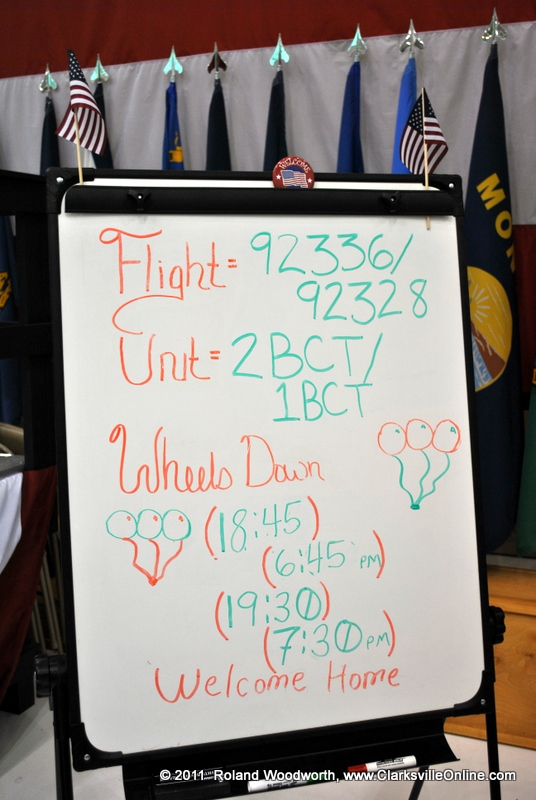 WELCOME
MON
Flight= 92336/
92328
Unit= 2BCT/
1BCT
Wheels Down
(18:45)
(6:45 PM)
(19:30)
(7:30 PM)
Welcome Home
© 2011 Roland Woodworth, www.ClarksvilleOnline.com